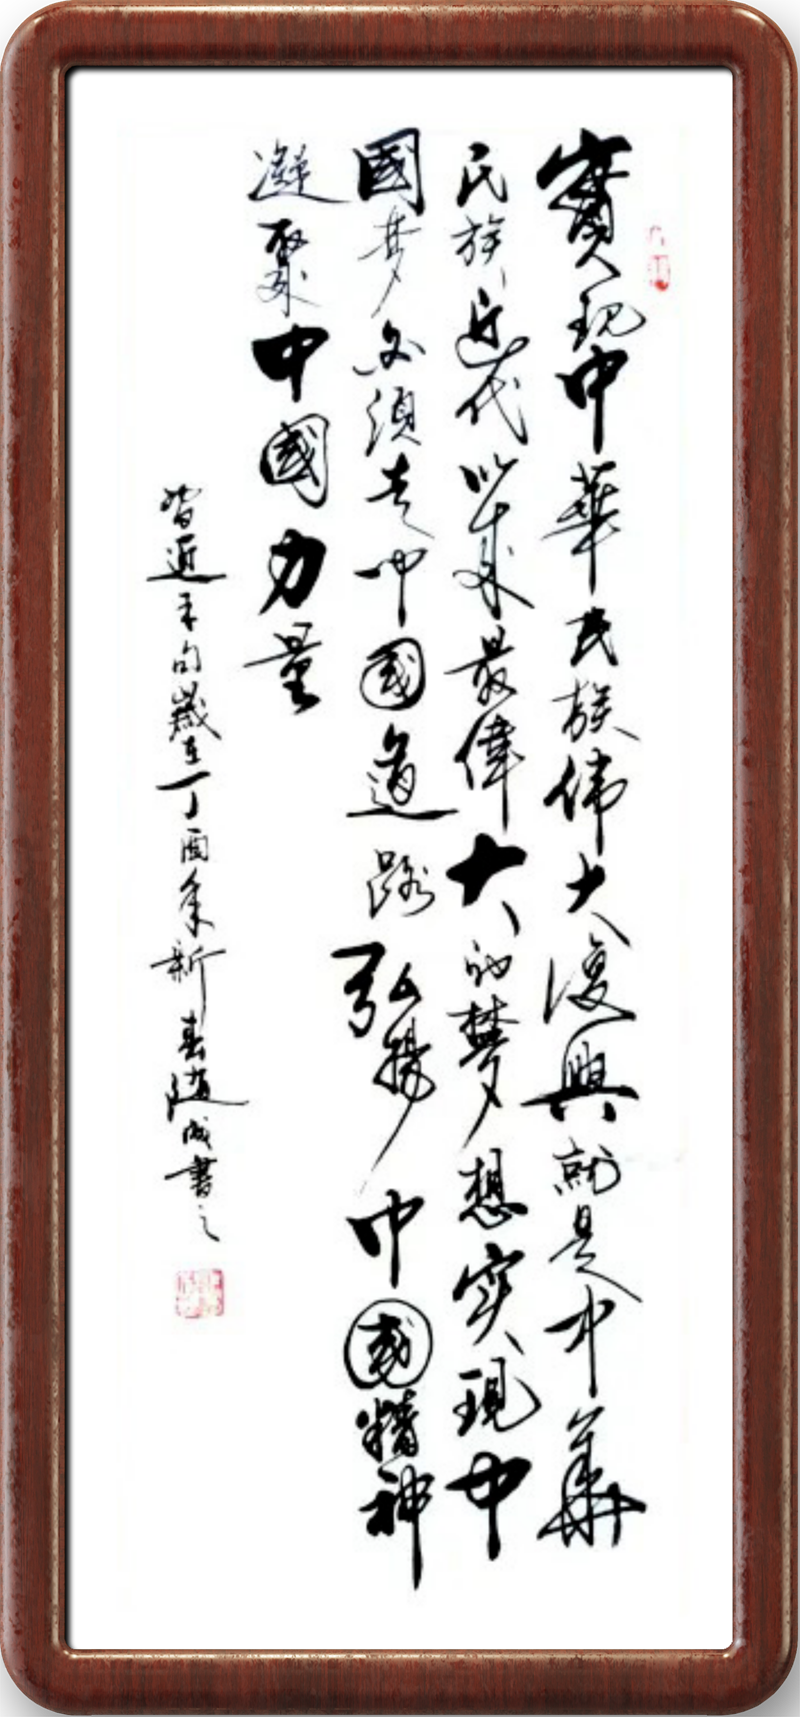 實現中華民族伟大復興就是中華
民族近代以來最偉大的夢想实現中
國梦必须走中國道路弘揚中國精神
凝聚中國力量
習近平句歲在丁酉年新春随成書之